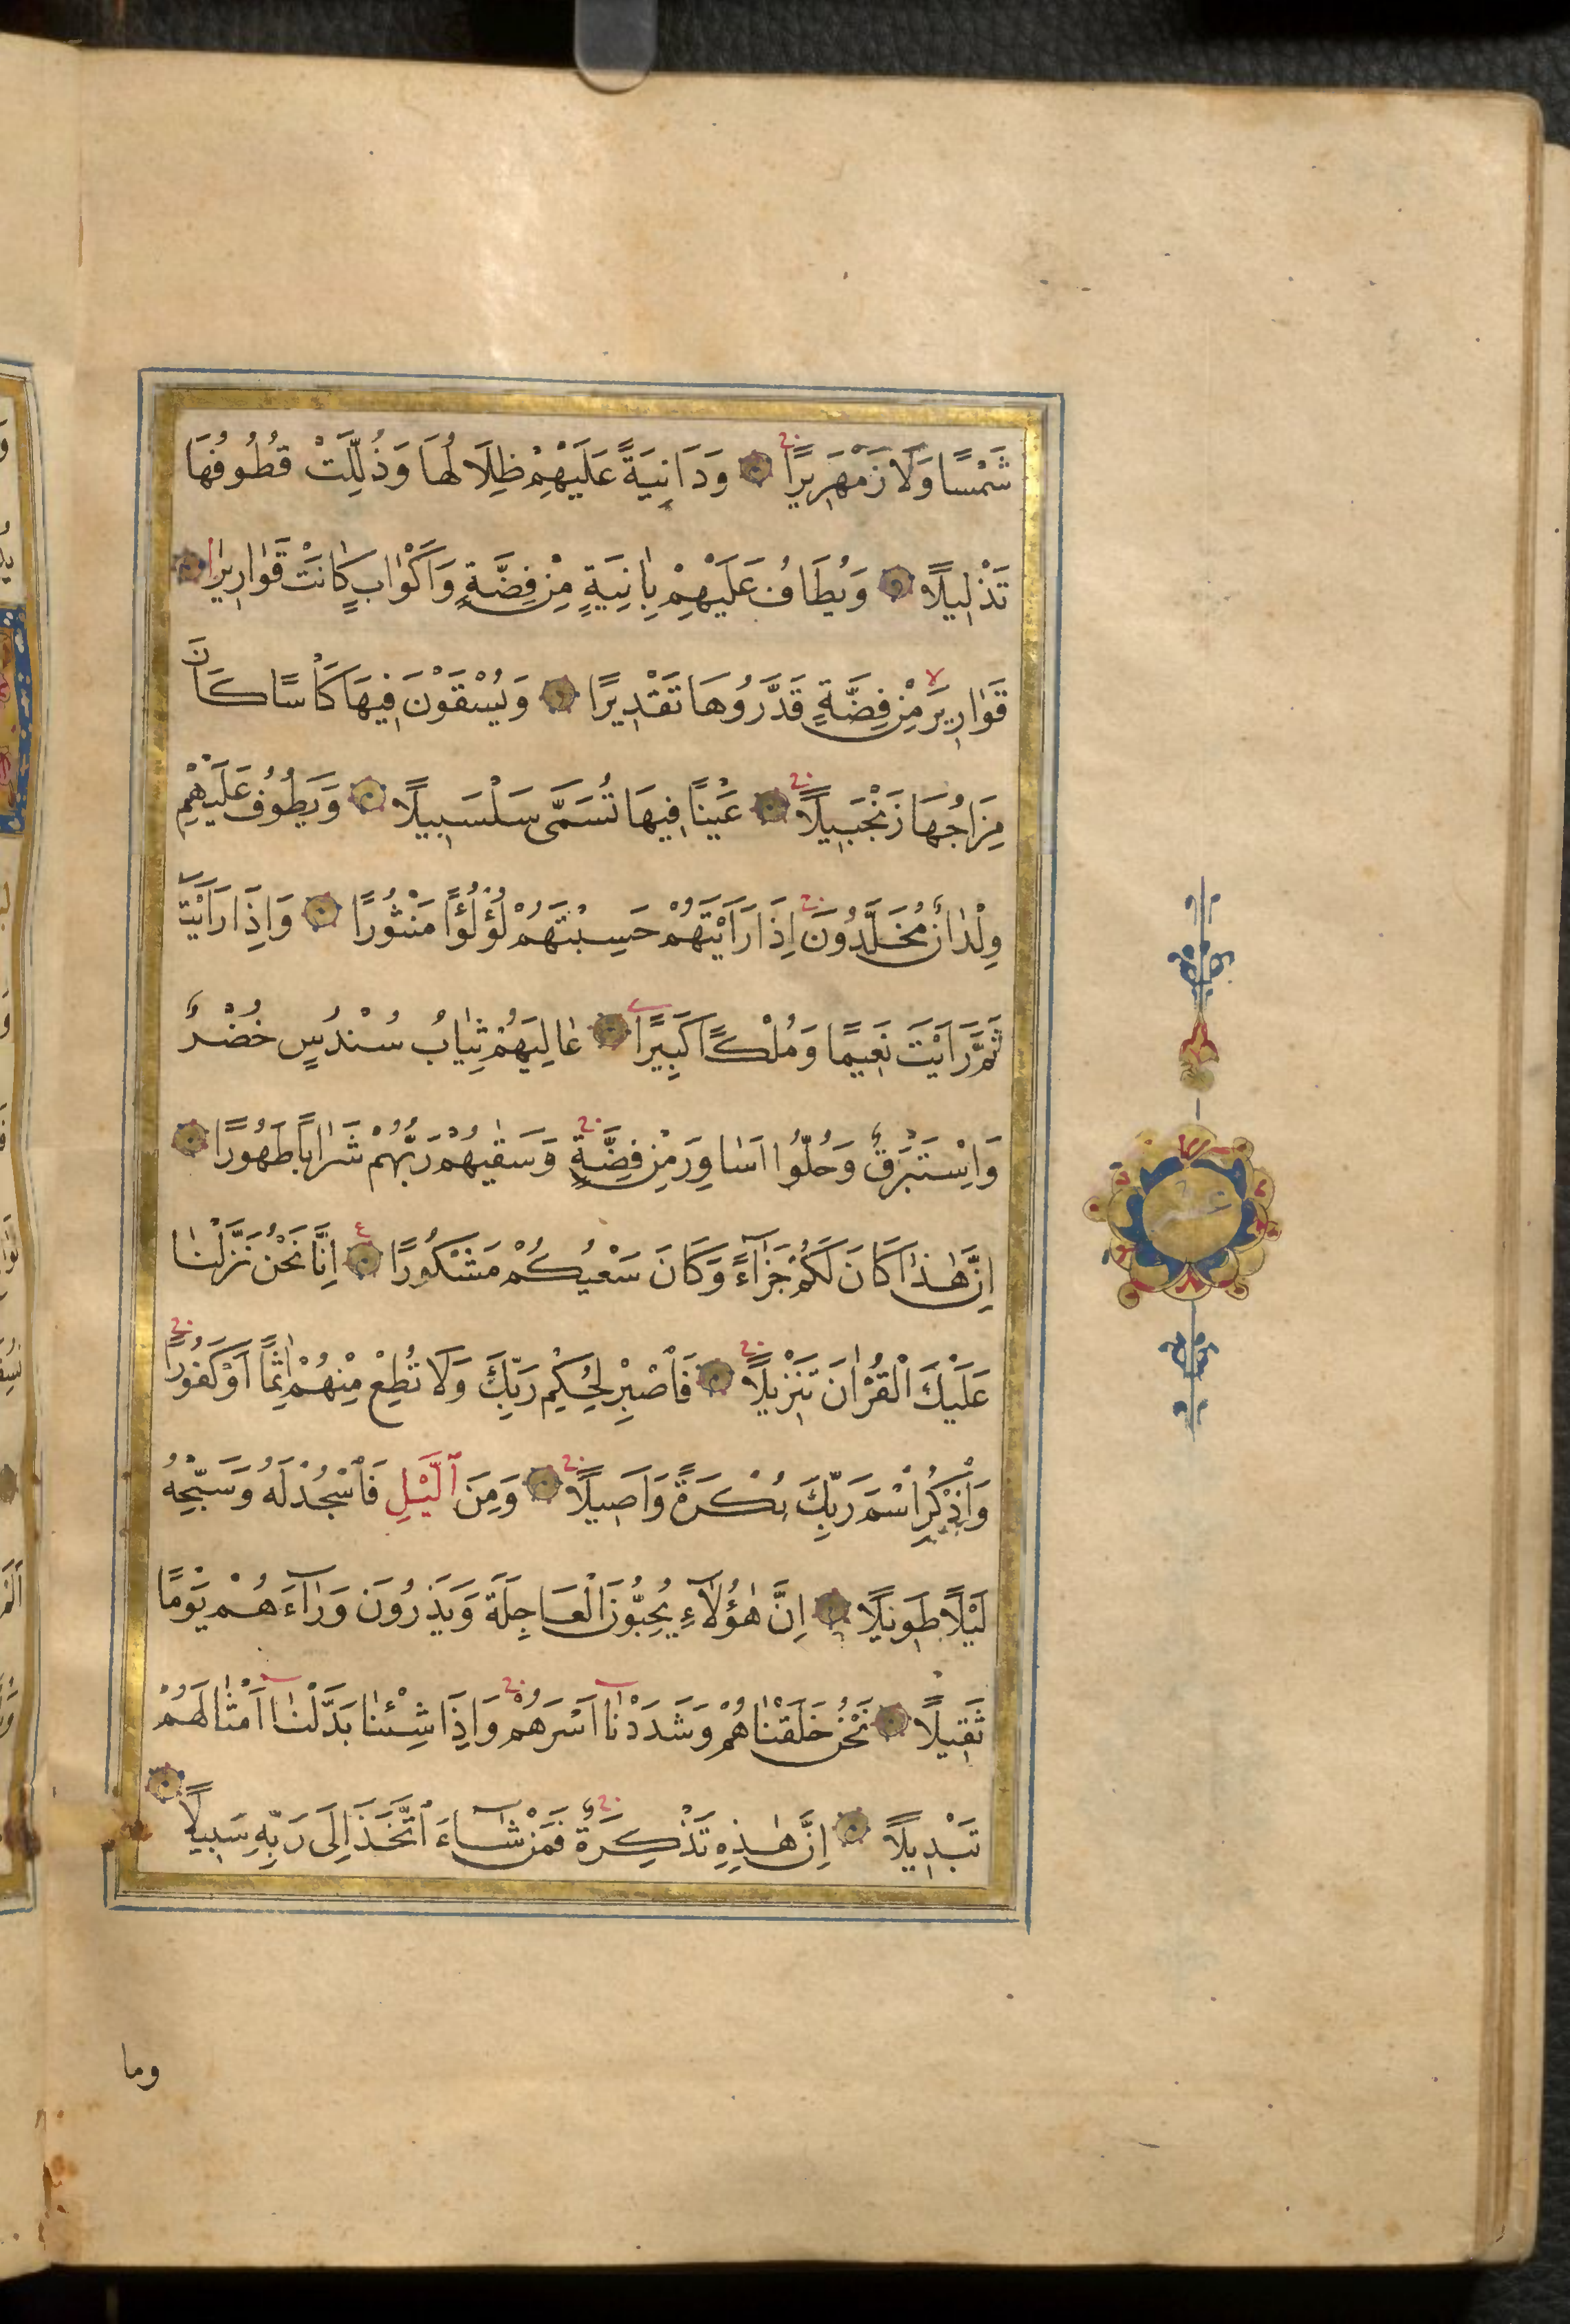 شَمْسًا وَلَا زَمْهَرِيرًا وَدَانِيَةً عَلَيْهِمْ ظِلَالُهَا وَذُلِّلَتْ قُطُوفُهَا
تَذْلِيلًا وَيُطَافُ عَلَيْهِمْ بِاٰنِيَةٍ مِنْ فِضَّةٍ وَاَكْوَابٍ كَانَتْ قَوَارِيرَا
قَوَارِيرَ مِنْ فِضَّةٍ قَدَّرُوهَا تَقْدِيرًا وَيُسْقَوْنَ فِيهَا كَأْسًا كَانَ
مِزَاجُهَا زَنْجَبِيلًا عَيْنًا فِيهَا تُسَمَّى سَلْسَبِيلًا وَيَطُوفُ عَلَيْهِمْ
وِلْدَانٌ مُخَلَّدُونَ اِذَا رَاَيْتَهُمْ حَسِبْتَهُمْ لُؤْلُؤًا مَنْثُورًا وَاِذَا رَاَيْتَ
ثَمَّ رَاَيْتَ نَعِيمًا وَمُلْكًا كَبِيرًا عَالِيَهُمْ ثِيَابُ سُنْدُسٍ خُضْرٌ
وَاِسْتَبْرَقٌ وَحُلُّوا اَسَاوِرَ مِنْ فِضَّةٍ وَسَقٰيهُمْ رَبُّهُمْ شَرَابًا طَهُورًا
اِنَّ هٰذَا كَانَ لَكُمْ جَزَاءً وَكَانَ سَعْيُكُمْ مَشْكُورًا ع اِنَّا نَحْنُ نَزَّلْنَا
عَلَيْكَ الْقُرْاٰنَ تَنْزِيلًا فَاصْبِرْ لِحُكْمِ رَبِّكَ وَلَا تُطِعْ مِنْهُمْ اٰثِمًا اَوْ كَفُورًا
وَاذْكُرِ اسْمَ رَبِّكَ بُكْرَةً وَاَصِيلًا وَمِنَ الَّيْلِ فَاسْجُدْ لَهُ وَسَبِّحْهُ
لَيْلًا طَوِيلًا اِنَّ هٰؤُلَاءِ يُحِبُّونَ الْعَاجِلَةَ وَيَذَرُونَ وَرَاءَهُمْ يَوْمًا
ثَقِيلًا نَحْنُ خَلَقْنَاهُمْ وَشَدَدْنَا اَسْرَهُمْ وَاِذَا شِئْنَا بَدَّلْنَا اَمْثَالَهُمْ
تَبْدِيلًا اِنَّ هٰذِهِ تَذْكِرَةٌ فَمَنْ شَاءَ اتَّخَذَ اِلَى رَبِّهِ سَبِيلًا
وما
عشر